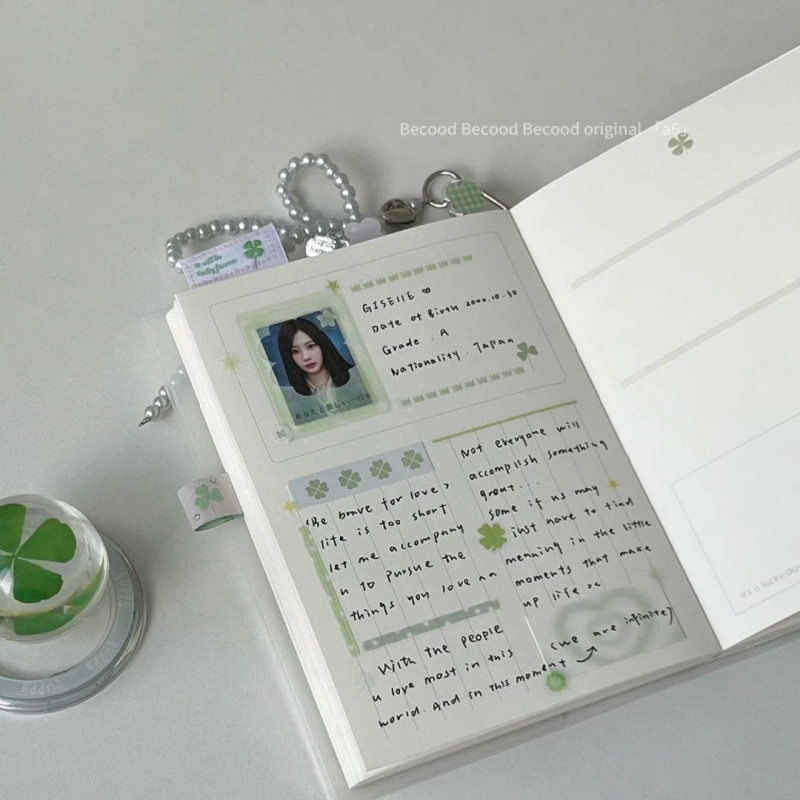 Becood Becood Becood original 「a6」
It will be
lucky forever
GISELLE ♡
Date of Birth 2000.10.30
Grade . A
Nationality . Japan
あなたと楽しい一日を
"Be brave for love,
life is too short
let me accompany
u to pursue the
things you love and
With the people
u love most in this
world. And in this moment
(we are infinite)
Not everyone will
accomplish something
great...
some it us may
just have to find
meaning in the little
moments that make
up life
It's a lucky day
PUPPY